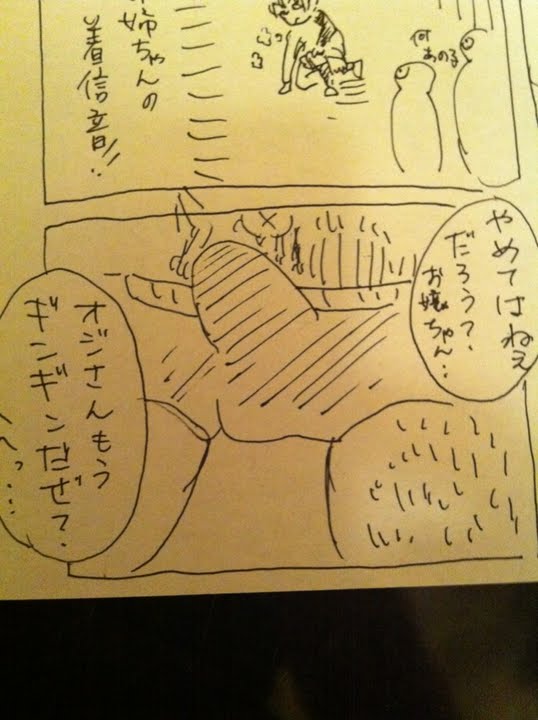 姉ちゃんの
着信音!!
何
あのる
やめてはねぇ
だろう?
お嬢ちゃん…
オジさんもう
ギンギンだぜ?
へっ…